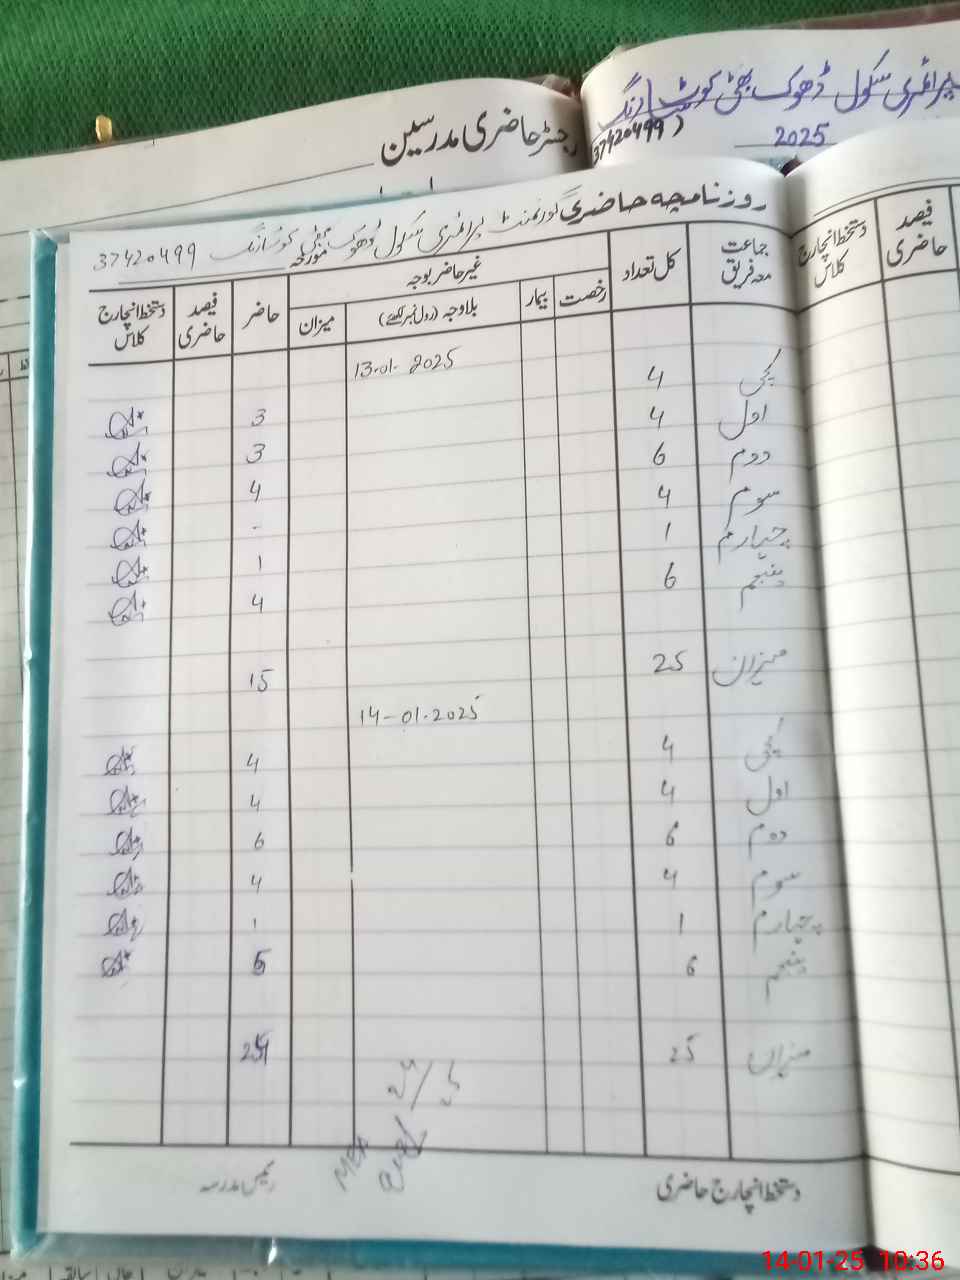 پرائمری سکول ڈھوک بھٹی کوٹ سارنگ
(37420499)
2025
رجسٹر حاضری مدرسین
روزنامچہ حاضری گورنمنٹ پرائمری سکول ڈھوک بھٹی کوٹ سارنگ مورخہ 37420499
جماعت معہ فریق کل تعداد غیر حاضر بوجہ حاضر فیصد حاضری دستخط انچارج کلاس
رخصت بیمار بلاوجہ (رول نمبر لکھیے) میزان
دستخط انچارج کلاس فیصد حاضری
13-01-2025
کچی 4 3
اول 4 3
دوم 6 4
سوم 4 -
چہارم 1 1
پنجم 6 4
میزان 25 15
14-01-2025
کچی 4 4
اول 4 4
دوم 6 6
سوم 4 4
چہارم 1 1
پنجم 6 5
میزان 25 24
24/25
MEA
دستخط انچارج حاضری
رئیس مدرسہ
14-01-25 10:36